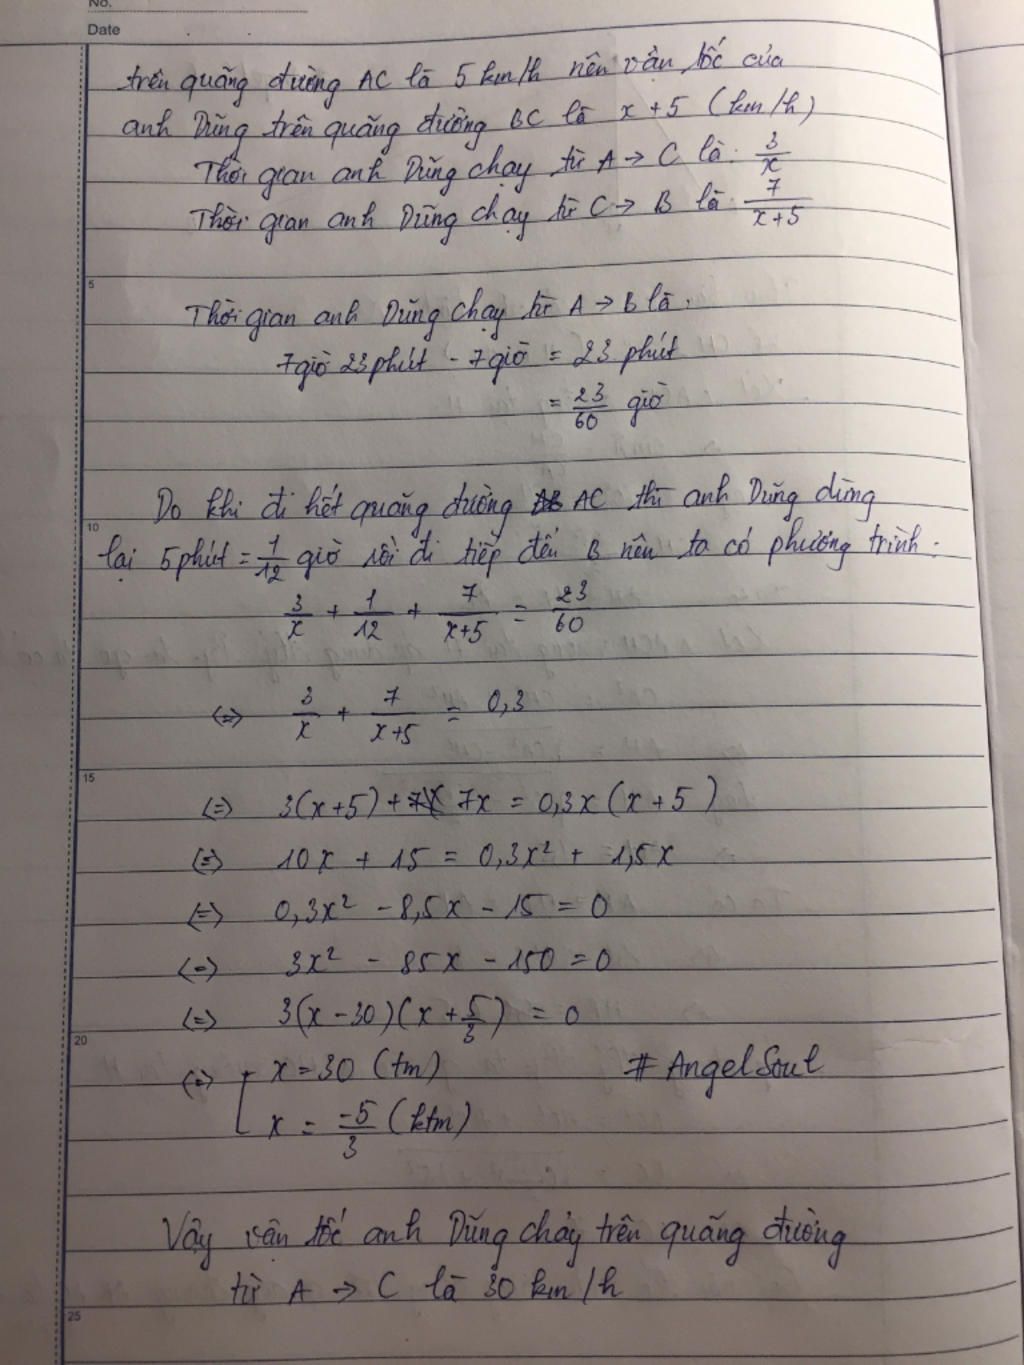 No.
Date
trên quãng đường AC là 5 km/h nên vận tốc của
anh Dũng trên quãng đường BC là x + 5 (km/h)
Thời gian anh Dũng chạy từ A → C là: 3/x
Thời gian anh Dũng chạy từ C → B là 7/(x+5)
5
Thời gian anh Dũng chạy từ A → B là:
7 giờ 23 phút - 7 giờ = 23 phút
= 23/60 giờ
Do khi đi hết quãng đường AC thì anh Dũng dừng
10
lại 5 phút = 1/12 giờ rồi đi tiếp đến B nên ta có phương trình:
3/x + 1/12 + 7/(x+5) = 23/60
(=) 3/x + 7/(x+5) = 0,3
15
(=) 3(x+5) + 7x = 0,3x(x+5)
(=) 10x + 15 = 0,3x² + 1,5x
(=) 0,3x² - 8,5x - 15 = 0
(=) 3x² - 85x - 150 = 0
(=) 3(x-30)(x+5/3) = 0
20
(=) [ x = 30 (tm) # AngelSoul
x = -5/3 (ktm)
Vậy vận tốc anh Dũng chạy trên quãng đường
từ A → C là 30 km/h
25